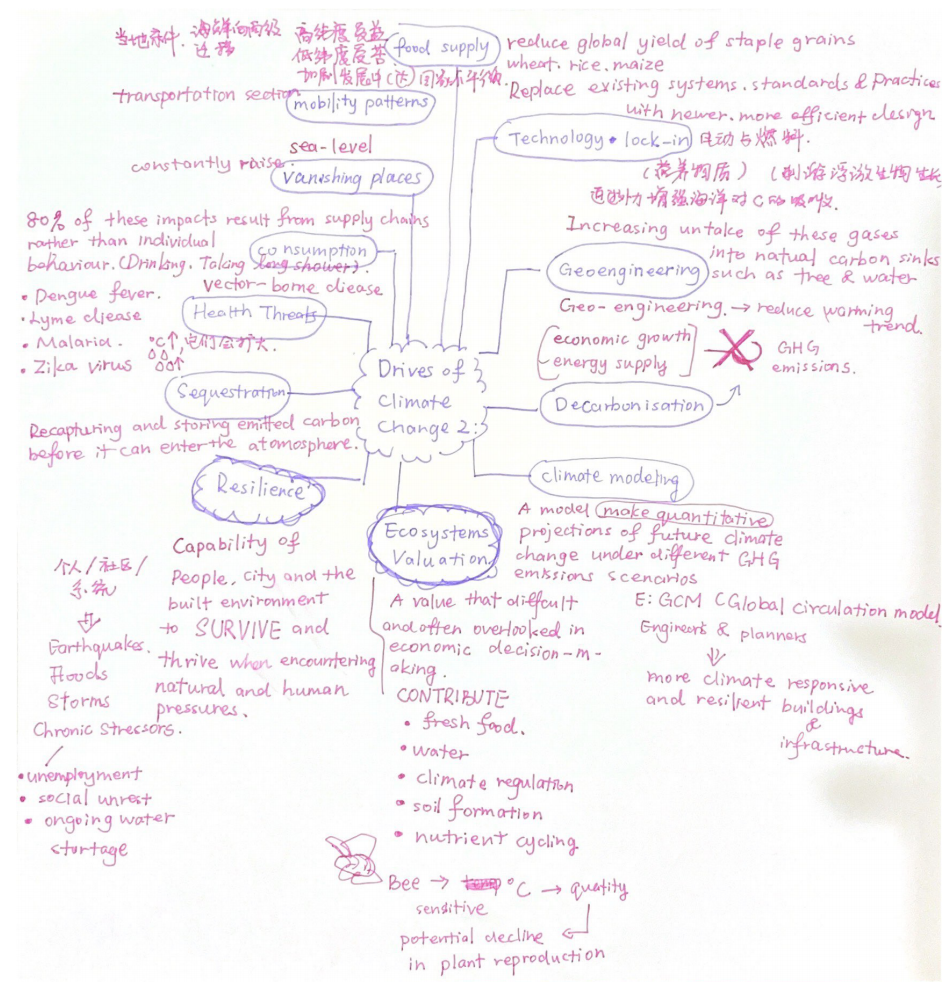 当地条件. 海鲜向高级
迁移
高纬度受益
低纬度受苦
food supply
reduce global yield of staple grains
wheat. rice. maize
transportation section
mobility patterns
Replace existing systems. standards & Practices
with newer. more efficient design
Technology • lock-in 电动与燃料.
sea-level
constantly raise
vanishing places
(营养物质)
增强海洋对C的吸收.
80% of these impacts result from supply chains
rather than individual
behaviour. (Drinking. Taking long shower).
consumption
Increasing untake of these gases
into natual carbon sinks
such as tree & water
Geoengineering
Geo-engineering. → reduce warming
trend.
vector-bome diease
Health Threats
• Dengue fever.
• Lyme diease
• Malaria. °C↑, 它们会扩大.
• Zika virus
economic growth
energy supply
GHG
emissions.
Decarbonisation
Drives of
Climate
Change 2:
Sequestration
Recapturing and storing emitted carbon
before it can enter the atomosphere.
Resilience
Capability of
People, city and the
built environment
to SURVIVE and
thrive when encountering
natural and human
pressures.
个人/社区/
系统
Earthquakes.
Floods
Storms
Chronic Stressors.
• unemployment
• social unrest
• ongoing water
stortage
Ecosystems
Valuation
A value that diffcult
and often overlooked in
economic decision-m-
aking.
CONTRIBUTE
• fresh food.
• water
• climate regulation
• soil formation
• nutrient cycling
Bee → °C → quatity
sensitive
potential decline
in plant reproduction
climate modeling
A model make quantitative
projections of future climate
change under different GHG
emissions scenarios
E: GCM (Global circulation model
Engineers & planners
more climate responsive
and resilient buildings
&
infrastructure.